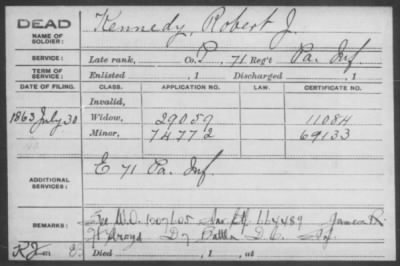 DEAD
NAME OF SOLDIER: Kennedy, Robert J.
SERVICE: Late rank, Co. P, 71 Reg't Pa. Inf
TERM OF SERVICE: Enlisted , 1 Discharged , 1
DATE OF FILING. CLASS. APPLICATION NO. LAW. CERTIFICATE NO.
Invalid,
1863 July 30 Widow, 29059 11084
Minor, 74772 69133
ADDITIONAL SERVICES: E 71 Pa. Inf.
REMARKS: See W.O. 1007605
Died , 1 , at